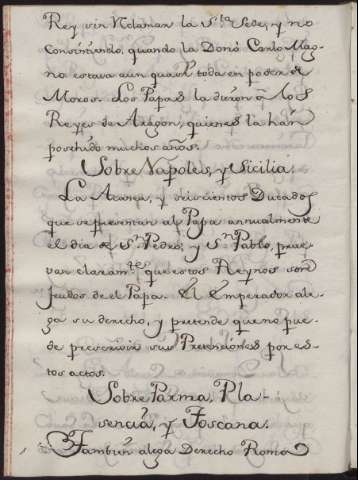 Rey sin Reclamar la S.ta Sede, y no
consintiendo, quando la Donó Carlo Mag-
no estava aun quasi toda en poder de
Moros. Los Papas la dieron a los
Reyes de Aragon, quienes la han
posehido muchos años.
Sobre Napoles, y Sicilia.
La Acanea, y seiscientos Ducados
que se presentan al Papa annualmente
el dia de S.n Pedro, y S.n Pablo, prue-
van claram.te que estos Reynos son
feudos de el Papa. El Emperador ale-
ga su derecho, y pretende que no pue-
de prescrivir sus Pretensiones por es-
tos actos.
Sobre Parma, Pla-
sencia, y Toscana.
Tambien alega Derecho Roma